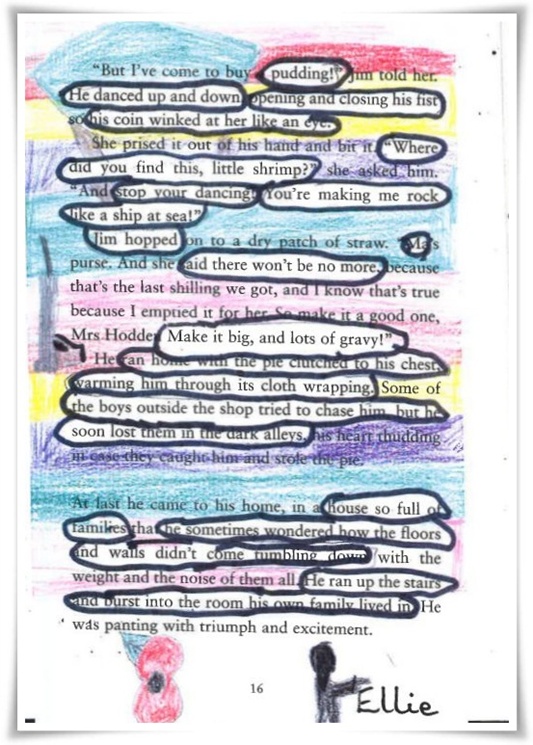 “But I’ve come to buy pudding!” Jim told her.
He danced up and down opening and closing his fist
so his coin winked at her like an eye.
She prised it out of his hand and bit it. “Where
did you find this, little shrimp?” she asked him.
“And stop your dancing! You’re making me rock
like a ship at sea!”
Jim hopped on to a dry patch of straw. “Ma’s
purse. And she said there won’t be no more, because
that’s the last shilling we got, and I know that’s true
because I emptied it for her. So make it a good one,
Mrs Hodder. Make it big, and lots of gravy!”
He ran home with the pie clutched to his chest,
warming him through its cloth wrapping. Some of
the boys outside the shop tried to chase him, but he
soon lost them in the dark alleys, his heart thudding
in case they caught him and stole the pie.
At last he came to his home, in a house so full of
families that he sometimes wondered how the floors
and walls didn’t come tumbling down with the
weight and the noise of them all. He ran up the stairs
and burst into the room his own family lived in. He
was panting with triumph and excitement.
16
Ellie